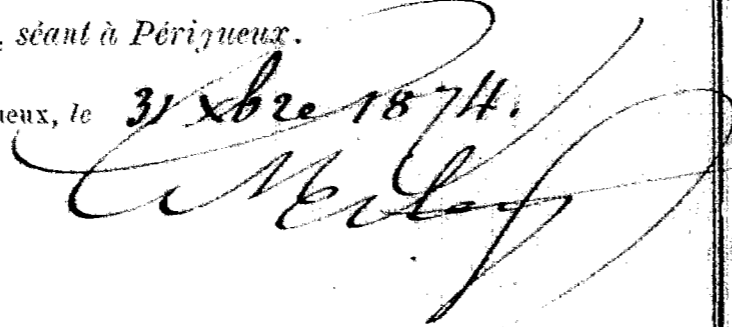 séant à Périgueux.
ueux, le 31 Xbre 1874.